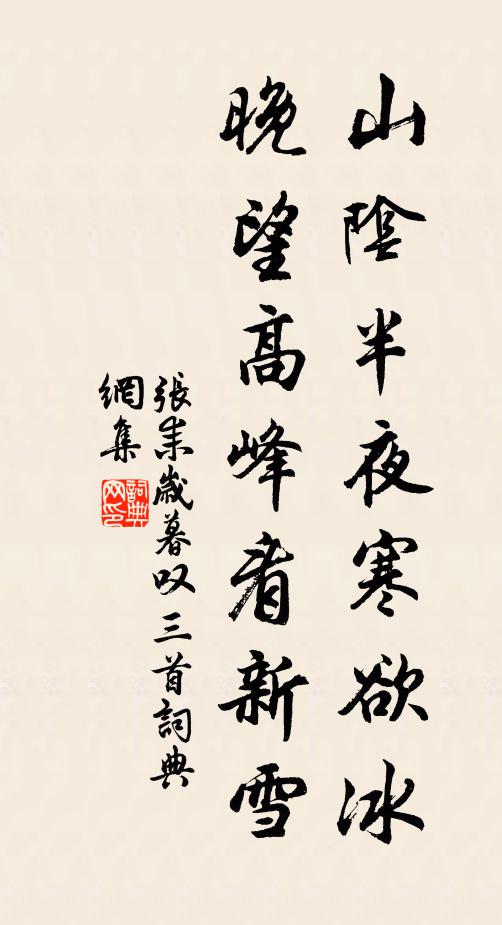 山陰半夜寒欲冰
晚望高峰看新雪
張耒歲暮叹三首詞典
網集
詞典网印